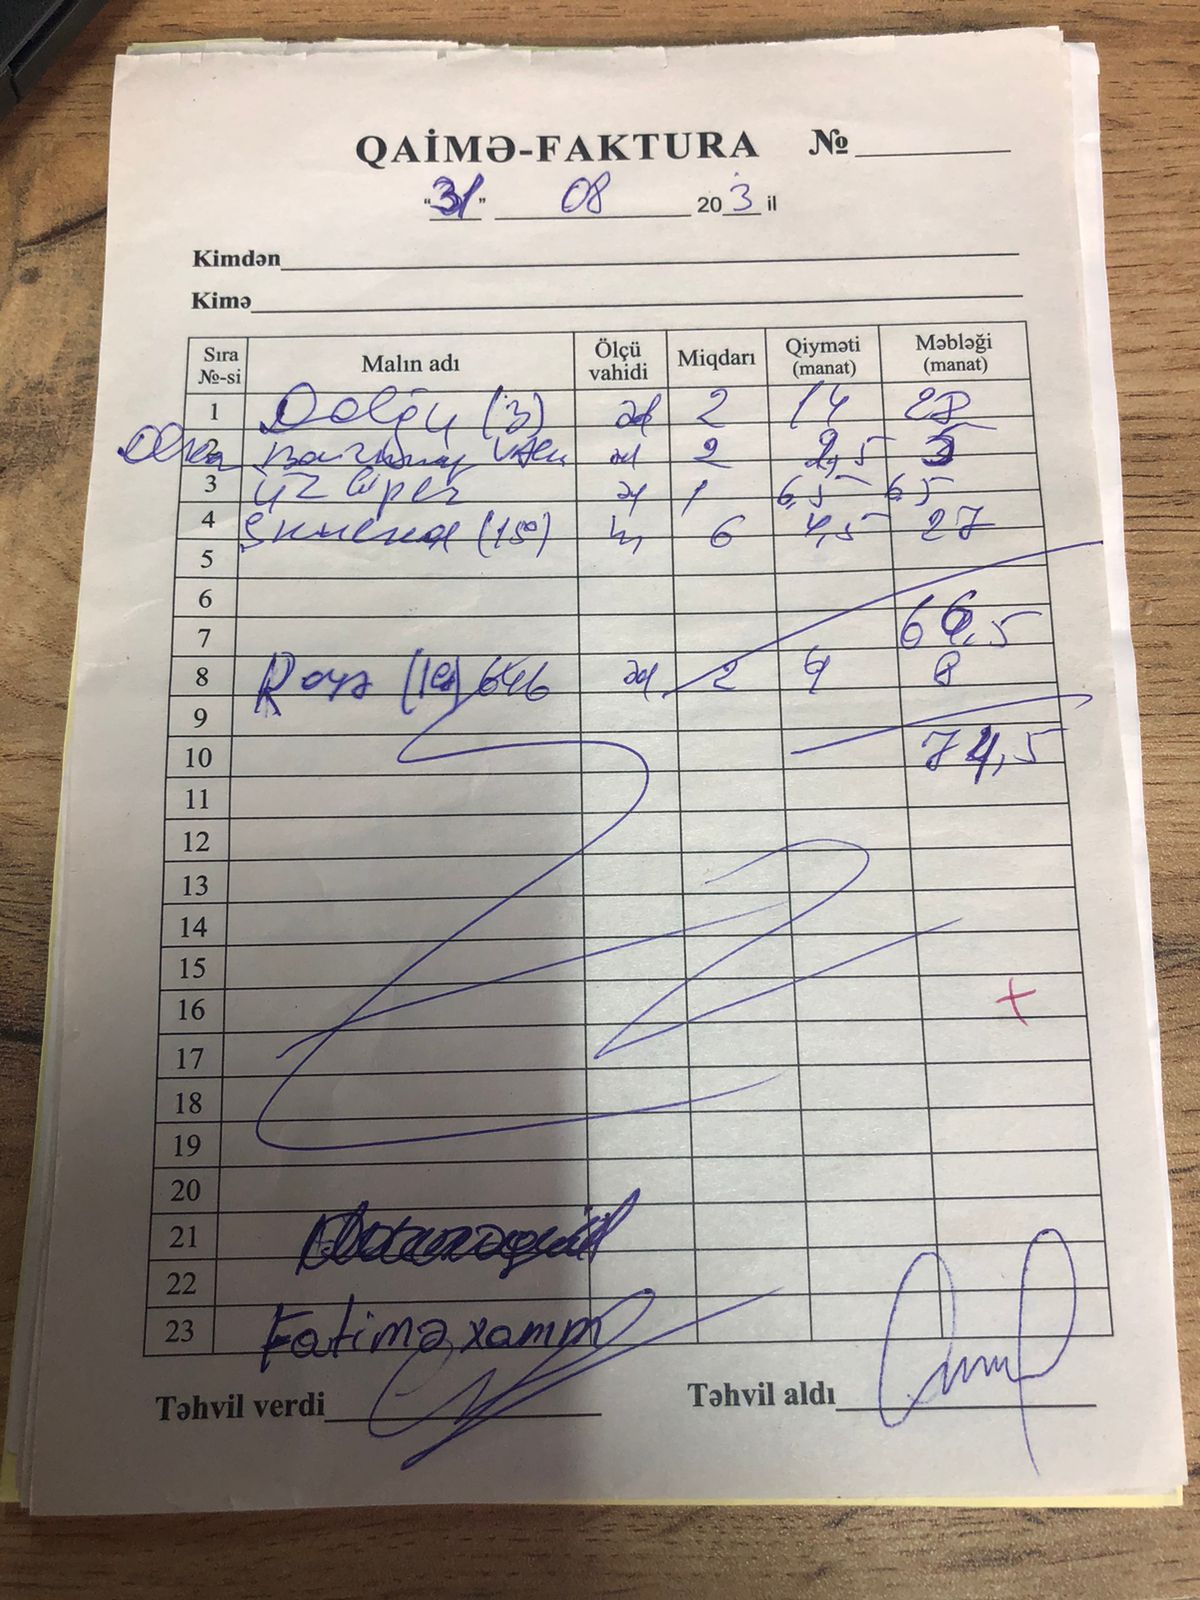 QAİMƏ-FAKTURA №
"31" 08 203 il
Kimdən
Kimə
Sıra №-si Malın adı Ölçü vahidi Miqdarı Qiyməti (manat) Məbləği (manat)
1 (3) əd 2 14 28
2 əd 2 2,5 5
3 əd 1 6,5 6,5
4 6 4,5 27
5
6
7 66,5
8 əd 2 4 8
9
10 74,5
11
12
13
14
15
16 +
17
18
19
20
21
22
23 Fatimə xanım
Təhvil verdi Təhvil aldı